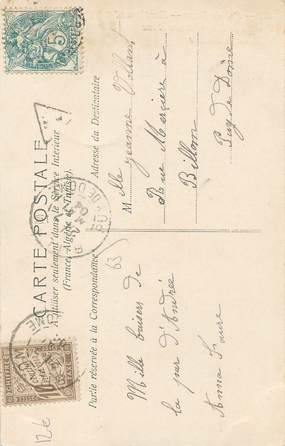 CARTE POSTALE
A utiliser seulement dans le Service Intérieur
(France, Algérie et Tunisie)
Partie réservée à la Correspondance
Adresse du Destinataire
63
Mille baisers de
la part d'Andrée
Anna Faure
Mlle Jeanne
Rue Mercière à
Billom
Puy de Dôme
5
10
12€